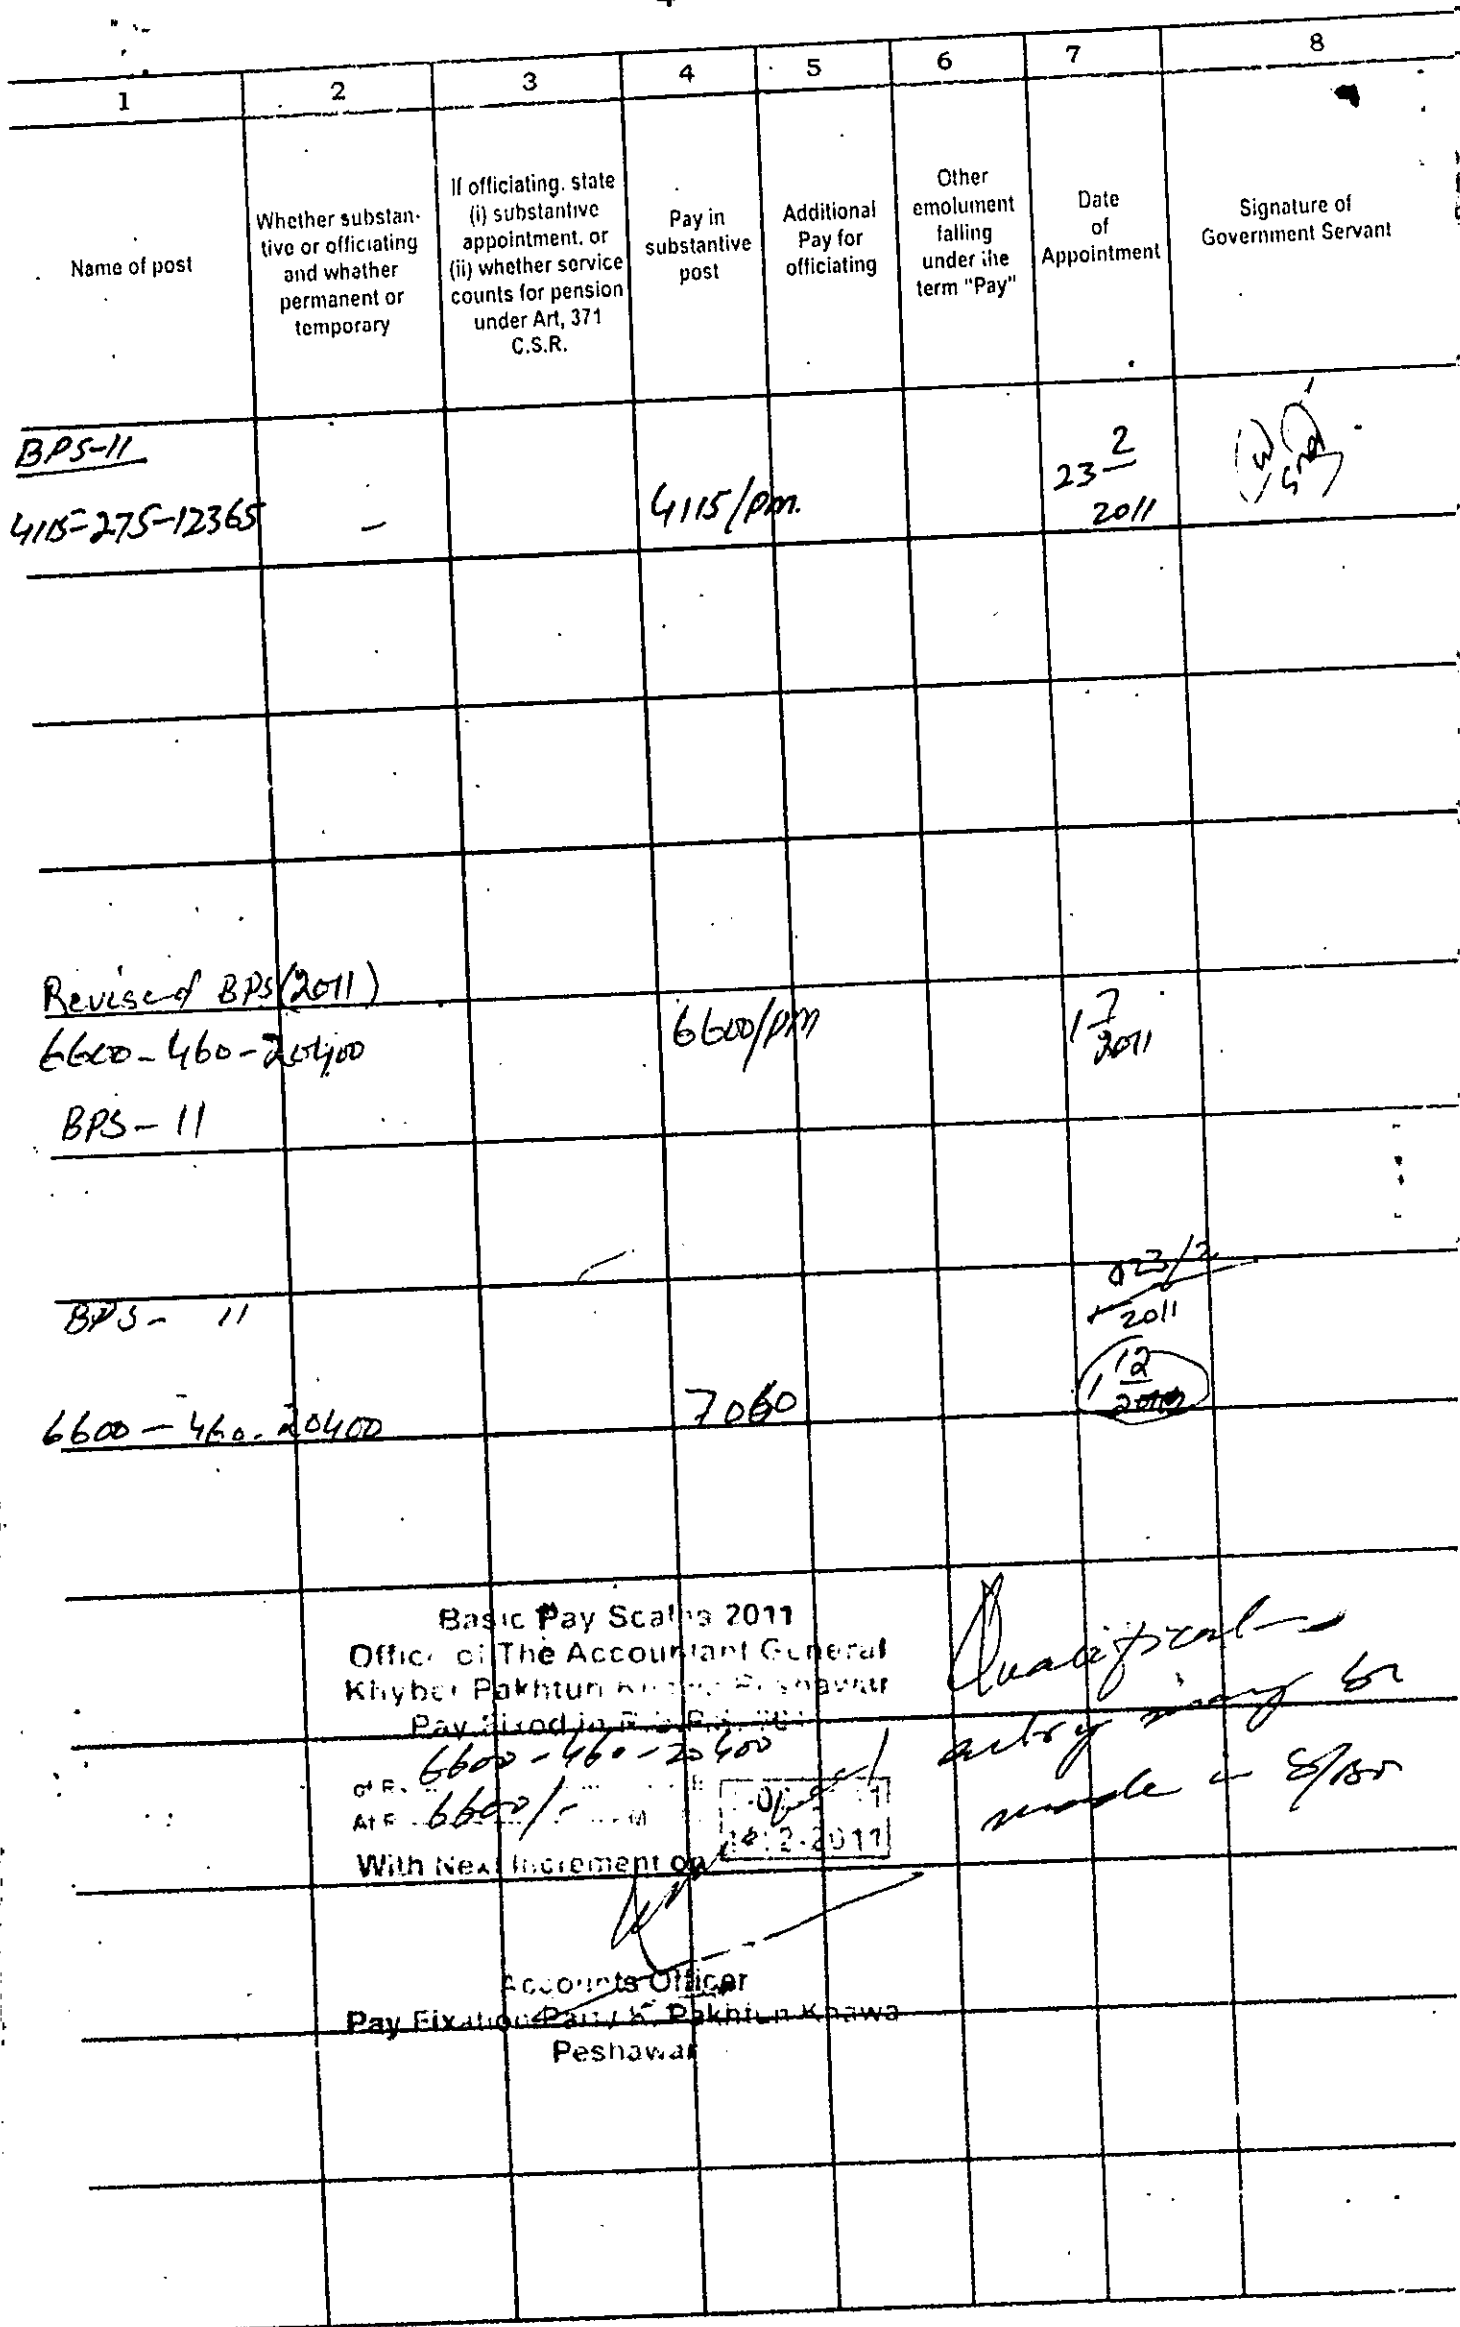 1 2 3 4 5 6 7 8
Name of post
Whether substan-
tive or officiating
and whather
permanent or
temporary
If officiating. state
(i) substantive
appointment. or
(ii) whether service
counts for pension
under Art, 371
C.S.R.
Pay in
substantive
post
Additional
Pay for
officiating
Other
emolument
falling
under the
term "Pay"
Date
of
Appointment
Signature of
Government Servant
BPS-11
4115-275-12365 - 4115/pm. 23 2
2011
Revised BPS (2011)
6600-460-20400 6600/pm 1 7
2011
BPS-11
BPS- 11
23/2
2011
6600-460-20400 7060 1 12
Basic Pay Scales 2011
Office of The Accountant General
Khyber Pakhtun Peshawar
Pay Fixed in
6600-460-20400
6600/-
12-2011
With Next Increment on
Accounts Officer
Pay Fixation Party K. Pakhtun Khawa
Peshawar
entry may be
made in S/